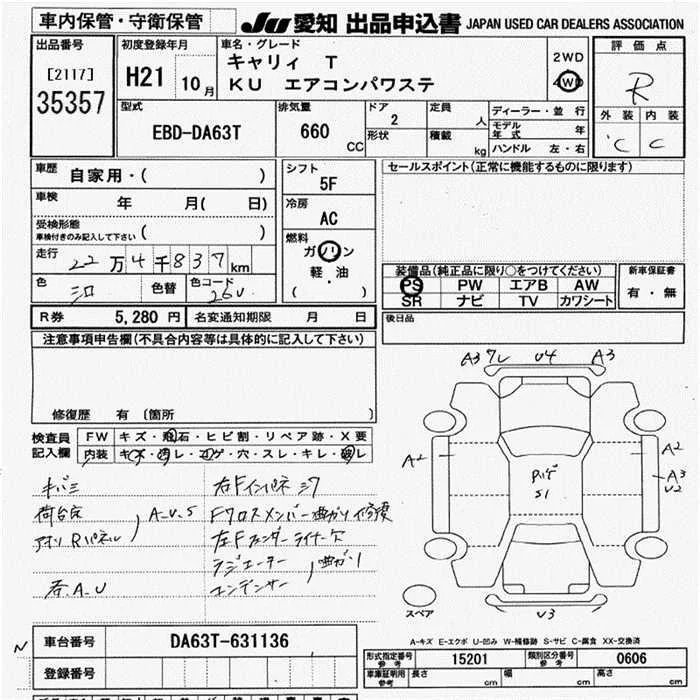 車内保管・守衛保管
JU 愛知 出品申込書 JAPAN USED CAR DEALERS ASSOCIATION
出品番号
[2117]
35357
初度登録年月
H21 10月
車名・グレード
キャリィ T
KU エアコンパワステ
2WD
4WD
評価点
R
外装 内装
C C
型式
EBD-DA63T
排気量
660 CC
ドア
2
形状
定員
人
積載
kg
ディーラー・並行
モデル年式 年
ハンドル 左・右
車歴
自家用・( )
車検
年 月( 日)
受検形態
車検付きのみ記入して下さい ( )
走行
22万4千837km
色
シロ
色替
色コード
26U
シフト
5F
冷房
AC
燃料
ガソリン
軽・油
( )
セールスポイント(正常に機能するものに限ります)
装備品(純正品に限り○をつけてください)
PS PW エアB AW
SR ナビ TV カワシート
新車保証書
有・無
R券 5,280円 名変通知期限 月 日
後日品
注意事項申告欄(不具合内容等は具体的に記入して下さい)
修復歴 有 〔箇所 〕
検査員記入欄
FW キズ・飛石・ヒビ割・リペア跡・X要
内装 キズ・汚レ・コゲ・穴・スレ・キレ・破レ
キバミ
荷台床
アオリ Rパネル
A.U.S
A.U
左Fインパネ
Fクロスメンバー曲がり修復
左Fフェンダーライナー欠
ラジエーター
コンデンサー
曲がり
A3 ワレ U4 A3
A2
A2
A3
U2
S1
U3
スペア
A-キズ E-エクボ U-凹み W-補修跡 S-サビ C-腐食 XX-交換済
N
車台番号 DA63T-631136
登録番号
形式指定番号 参考 15201 類別区分番号 参考 0606
車庫証明用 参考 長さ cm 幅 cm 高さ cm